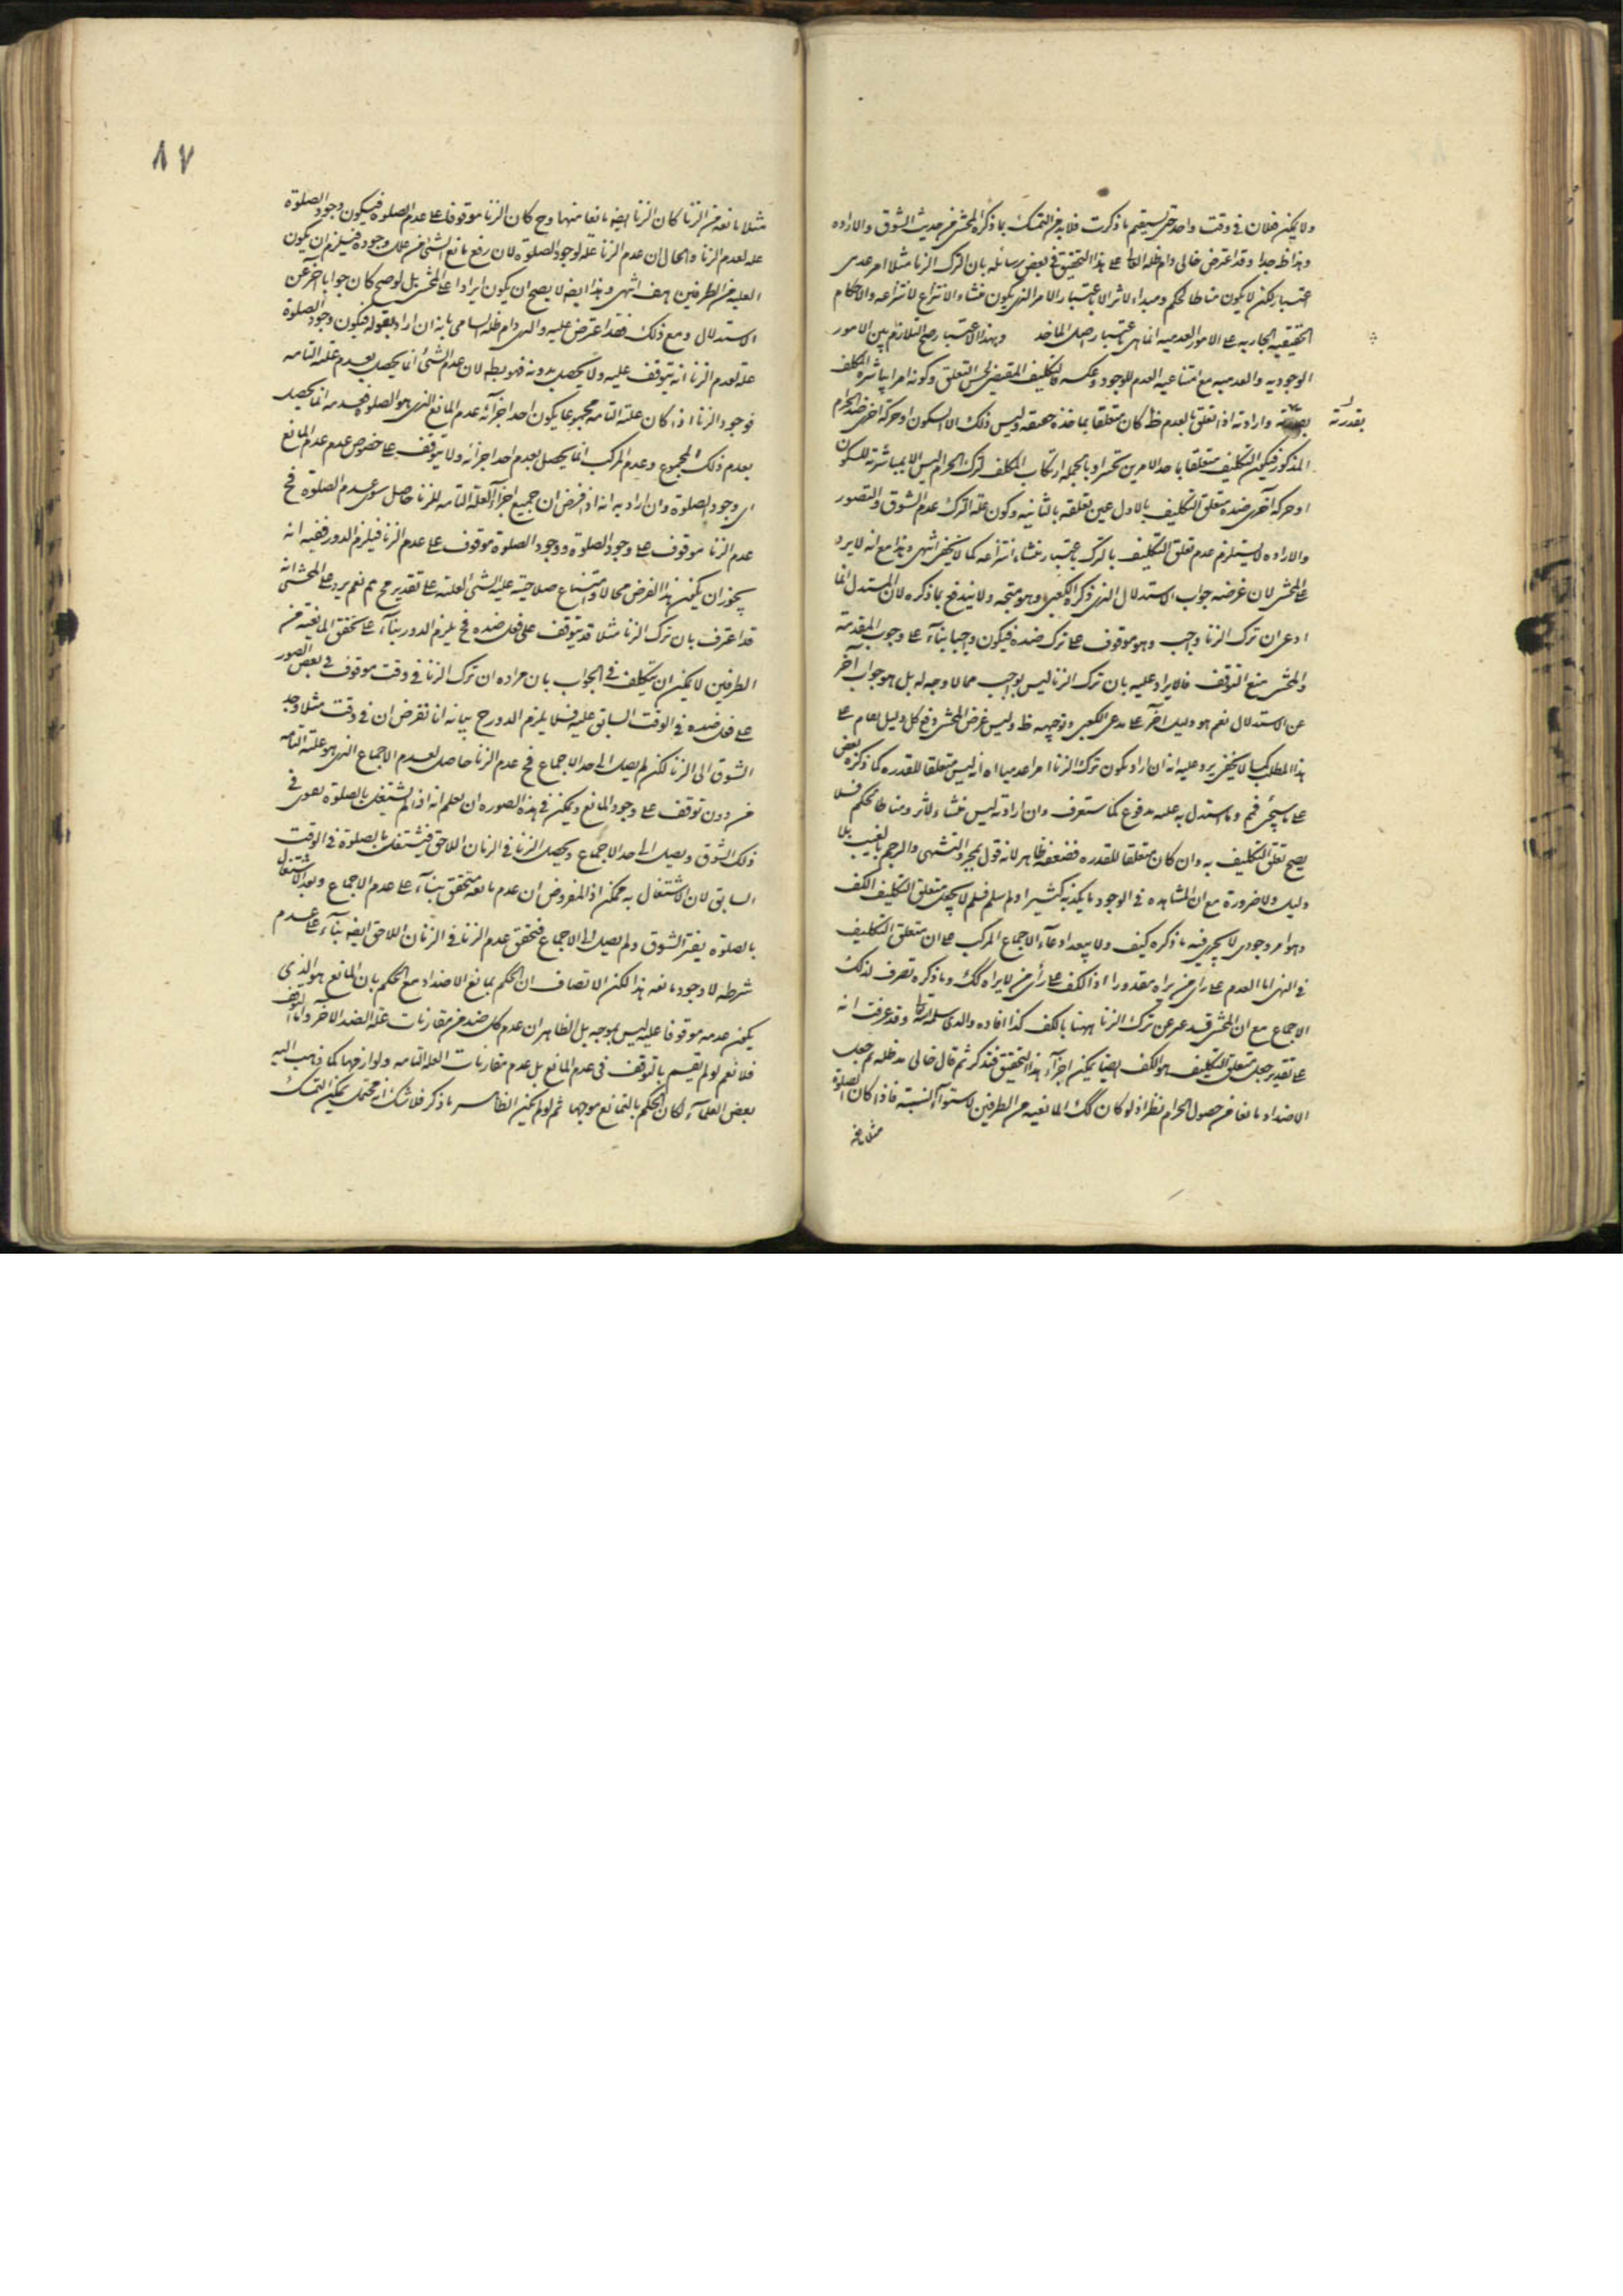 ولا يمكن فلان في وقت واحد حتى يستقيم ما ذكرت فلا بد من التمسك بما ذكره المحشى من حديث الشوق والاراده
وهذا ظ جدا وقد اعترض خالى دام ظله العالى على هذا التحقيق في بعض رسائله بان الترك الزنا مثلا امر عدمى
اعتبارى لكن لا يكون مناطا لحكم ومبداء لاثر الا باعتبار الامر الذى يكون منشاء الانتزاع لانتزاعه والاحكام
الحقيقيه الجاريه على الامور العدميه انما هى باعتبار اصل الماخذ وبهذا الاعتبار صح التلازم بين الامور
الوجوديه والعدميه مع امتناع عليه العدم للوجود وعكسه فالتكليف المقتضى لحسن التعلق وكونه امرا يباشره المكلف
بقدرته
وارادته اذا تعلق بالعدم ظ كان متعلقا بماخذه حقيقه وليس ذلك الا السكون او حركة اخرى ضد الحرام
المذكور فيكون التكليف متعلقا باحد الامرين تخيرا وبالجمله ارتكاب المكلف لترك الحرام ليس الا بمباشرته للسكون
او حركة اخرى ضده متعلق التكليف بالاول عين تعلقه بالثانيه وكون علة الترك عدم الشوق والتصور
والاراده لا يستلزم عدم تعلق التكليف بالترك باعتبار منشاء انتزاعه كما لا يخفى انتهى وهذا مع انه لا يرد
على المحشى لان غرضه جواب الاستدلال الذى ذكره الكعبى وهو متجه ولا يندفع بما ذكره لان المستدل انما
ادعى ان ترك الزنا واجب وهو موقوف على ترك ضده فيكون واجبا بناء على وجوب المقدمة
والمحشى منع التوقف فالايراد عليه بان ترك الزنا ليس بواجب مما لا وجه له بل هو جواب آخر
عن الاستدلال نعم هو دليل آخر على مدعى الكعبى وتوجيهه ظ وليس غرض المحشى دفع كل دليل اقام على
هذا المطلب كما لا يخفى يرد عليه انه ان اراد بكون ترك الزنا امرا عدميا انه ليس متعلقا للقدره كما ذكره بعض
على ما سيجئ فهم وما استدل به عليه مدفوع كما ستعرف وان اراد انه ليس منشاء لاثر ومناطا لحكم فلا
يصح تعلق التكليف به وان كان متعلقا للقدره فضعفه ظاهر لانه قول بمجرد التشهى والرجم بالغيب بلا
دليل ولا ضرورة مع ان المشاهده في الوجود ما يكذبه كثيرا ولو سلم فلم لا يجعل متعلق التكليف الكف
وهو امر وجودى لا يجرى فيه ما ذكره كيف ولا يبعد ادعاء الاجماع المركب على ان متعلق التكليف
في النهى اما العدم على راى من يراه مقدورا او الكف على رأى من لا يراه كك وما ذكره تصرف لذلك
الاجماع مع ان المحشى قد عبر عن ترك الزنا ههنا بالكف كذا افاده والدى سلمه الله تعالى وقد عرفت انه
على تقدير جعل متعلق التكليف هو الكف ايضا يمكن اجراء هذا التحقيق فتذكر ثم قال خالى مد ظله ثم جعل
الاضداد مانعا من حصول الحرام نظرا اذ لو كان كك المانعيه من الطرفين لاستواء النسبة فاذا كان الصلوة
مثلا مانعه
٨٧
مثلا مانعه من الزنا كان الزنا ايضا مانعا منها وح كان الزنا موقوفا على عدم الصلوة فيكون وجود الصلوة
عله لعدم الزنا والحال ان عدم الزنا عله لوجود الصلوة لان رفع مانع الشئ من علل وجوده فيلزم ان يكون
العليه من الطرفين هف انتهى وهذا ايضا لا يصح ان يكون ايرادا على المحشى بل لو صح كان جوابا آخر عن
الاستدلال ومع ذلك فقد اعترض عليه والدى دام ظله السامى بانه ان اراد بقوله فيكون وجود الصلوة
علة لعدم الزنا انه يتوقف عليه ولا يحصل بدونه فهو بط لان عدم الشئ انما يحصل بعدم علته التامه
فوجود الزنا اذا كان علته التامه مجموعا يكون احد اجزائه عدم المانع الذى هو الصلوة فعدمه انما يحصل
بعدم ذلك المجموع وعدم المركب انما يحصل بعدم احد اجزائه ولا يتوقف على خصوص عدم عدم المانع
اى وجود الصلوة وان اراد به انه اذا فرض ان جميع اجزاء العلة التامه للزنا حاصل سوى عدم الصلوة فح
عدم الزنا موقوف على وجود الصلوة ووجود الصلوة موقوف على عدم الزنا فيلزم الدور ففيه انه
يجوز ان يكون هذا الفرض محالا وامتناع صلاحية علية الشئ لعلته على تقدير مح مم نعم يرد على المحشى انه
قد اعترف بان ترك الزنا مثلا قد يتوقف على فعل ضده فح يلزم الدور بناء على تحقق المانعية من
الطرفين لا يمكن ان يتكلف في الجواب بان مراده ان ترك الزنا في وقت موقوف في بعض الصور
على فعل ضده في الوقت السابق عليه فلا يلزم الدور ح بيانه انا نفرض ان في وقت مثلا وجد
الشوق الى الزنا لكن لم يصل الى حد الاجماع فح عدم الزنا حاصل لعدم الاجماع الذى هو علته التامه
من دون توقف على وجود المانع ويمكن في هذه الصوره ان يعلم انه اذا لم يشتغل بالصلوة يقوى في
ذلك الشوق ويصل الى حد الاجماع ويحصل الزنا في الزمان اللاحق فيشتغل بالصلوة في الوقت
السابق لان الاشتغال به ممكن اذ المفروض ان عدم مانعه متحقق بناء على عدم الاجماع وبعد الاشتغال
بالصلوة يفتر الشوق ولم يصل الى الاجماع فتحقق عدم الزنا في الزمان اللاحق ايضا بناء على عدم
شرطه لا وجود مانعه هذا لكن الانصاف ان الحكم بمانع الاضداد مع الحكم بان المانع هو الذى
يكون عدمه موقوفا عليه ليس بموجه بل الظاهر ان عدم كل ضد من مقارنات علة الضد الآخر واما التوقف
فلا نعم لو لم نقسم بالتوقف في عدم المانع بل عدم مقارنات العلة التامه ولوازمها كما ذهب اليه
بعض العلماء لكان الحكم بالتمانع موجها ثم لو لم يكن الظاهر ما ذكر فلا شك انه محتمل يمكن التمسك